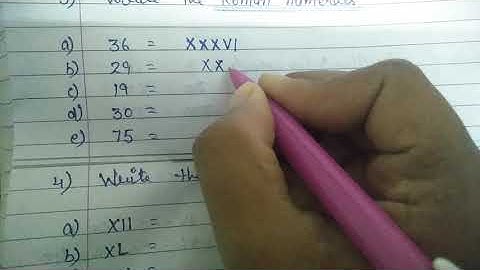 the Roman numerals
a) 36 = XXXVI
b) 29 = XX
c) 19 =
d) 30 =
e) 75 =
4) Write th
a) XII =
b) XL =